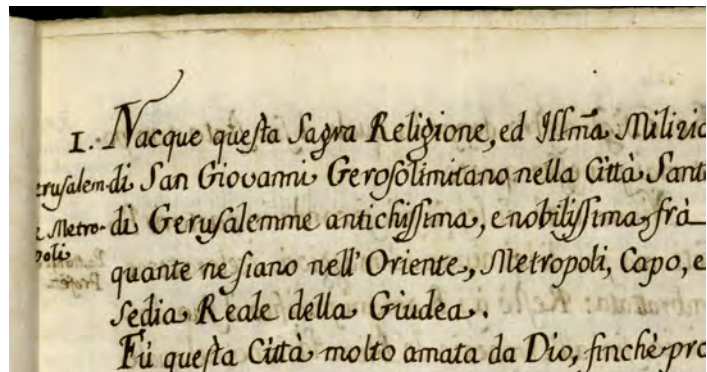 1. Nacque questa Sagra Religione, ed Illm̃a Milizia
erusalem di San Giovanni Gerosolimitano nella Città Sant
e Metro- di Gerusalemme antichissima, e nobilissima, frà
poli quante ne siano nell'Oriente, Metropoli, Capo, e
Sedia Reale della Giudea.
Fù questa Città molto amata da Dio, finchè pro